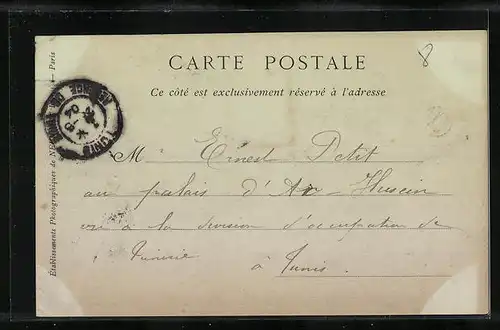 CARTE POSTALE
8
Ce côté est exclusivement réservé à l'adresse
M Ernest Petit
au palais d' Hussein
à la division d'occupation de
Tunisie
à Tunis.
Établissements Photographiques de Paris